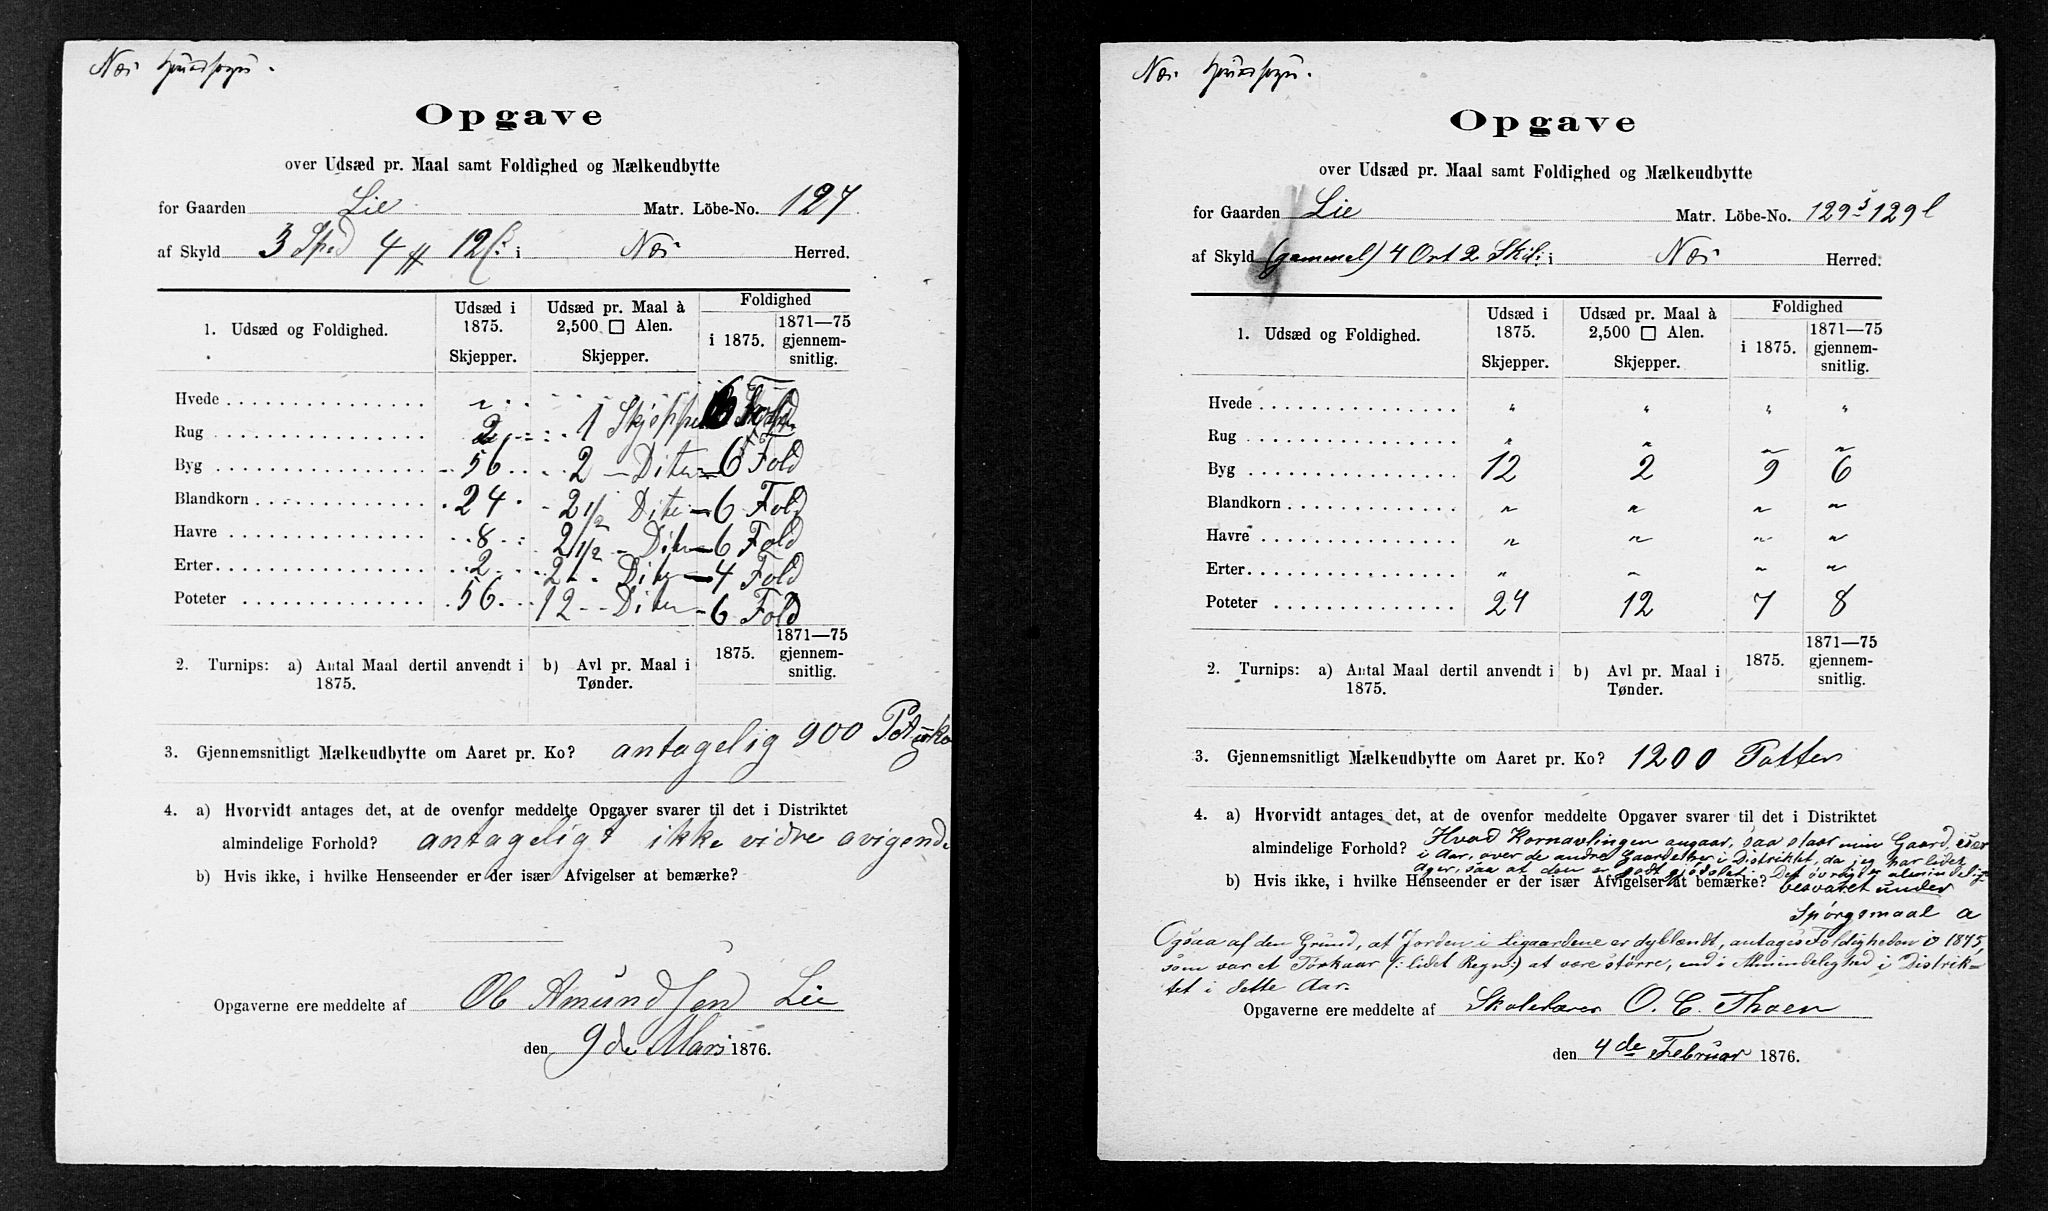 Næs
Opgave
over Udsæd pr. Maal samt Foldighed og Mælkeudbytte
for Gaarden Lie Matr. Löbe-No. 127
af Skyld 3 Spd 4 ℔ 12 i Næs Herred.
1. Udsæd og Foldighed.
Udsæd i 1875. Skjepper.
Udsæd pr. Maal à 2,500 □ Alen. Skjepper.
Foldighed
i 1875.
1871—75 gjennem-snitlig.
Hvede "
Rug 2 1 Skjeppe 6 Fold
Byg 56 2 — Dito — 6 Fold
Blandkorn 24 2 1/2 Dito — 6 Fold
Havre 8 2 1/2 — Dito — 6 Fold
Erter 2 2 Dito — 4 Fold
Poteter 56 12 — Dito — 6 Fold
2. Turnips: a) Antal Maal dertil anvendt i 1875.
b) Avl pr. Maal i Tønder.
1875.
1871—75 gjennem-snitlig.
3. Gjennemsnitligt Mælkeudbytte om Aaret pr. Ko? antagelig 900
4. a) Hvorvidt antages det, at de ovenfor meddelte Opgaver svarer til det i Distriktet
almindelige Forhold? antageligt ikke vidre avigende
b) Hvis ikke, i hvilke Henseender er der især Afvigelser at bemærke?
Opgaverne ere meddelte af Ole Amundsen Lie
den 9de Mars 1876.
Næs
Opgave
over Udsæd pr. Maal samt Foldighed og Mælkeudbytte
for Gaarden Lie Matr. Löbe-No. 129 129
af Skyld (gammel) 4 Ort 2 Skil: i Næs Herred.
1. Udsæd og Foldighed.
Udsæd i 1875. Skjepper.
Udsæd pr. Maal à 2,500 □ Alen. Skjepper.
Foldighed
i 1875.
1871—75 gjennem-snitlig.
Hvede " " " "
Rug " " " "
Byg 12 2 9 6
Blandkorn " " " "
Havre " " " "
Erter " " " "
Poteter 24 12 7 8
2. Turnips: a) Antal Maal dertil anvendt i 1875.
b) Avl pr. Maal i Tønder.
1875.
1871—75 gjennem-snitlig.
3. Gjennemsnitligt Mælkeudbytte om Aaret pr. Ko? 1200 Potter
4. a) Hvorvidt antages det, at de ovenfor meddelte Opgaver svarer til det i Distriktet
almindelige Forhold? Hvad Kornavlingen angaar, saa staar min Gaard, især
i Aar, over de andre Gaardelker i Distriktet, da jeg har lidet
Ager, saa at den er godt gjødslet. Det øvrige er almindeligt
b) Hvis ikke, i hvilke Henseender er der især Afvigelser at bemærke? besvaret under
Spørgsmaal a
Ogsaa af den Grund, at Jorden i Ligaardene er dyblændt, antages Foldigheden i 1875,
som var et Tørkaar (: lidet Regn:) at være større, end i Almindelighed i Distrik-
tet i dette Aar.
Opgaverne ere meddelte af Skolelærer O. C. Thoen
den 4de Februar 1876.